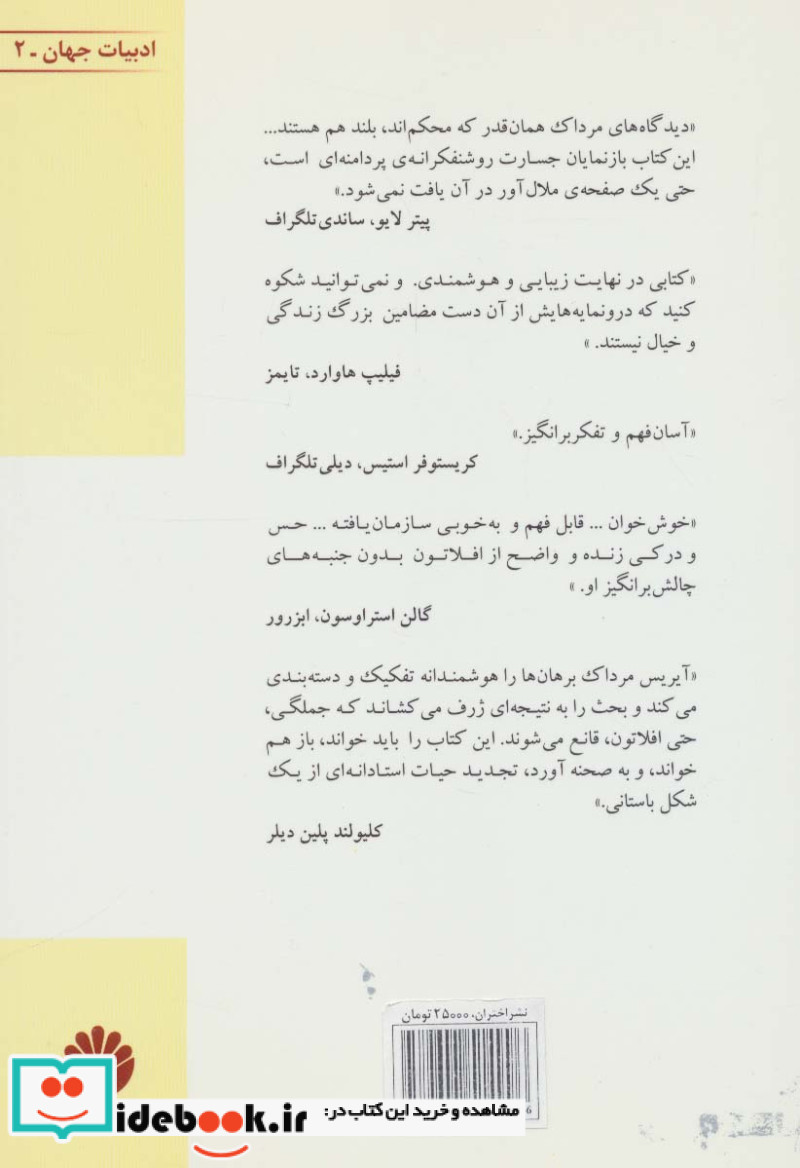 ادبیات جهان ـ ۲
«دیدگاه‌های مرداک همان‌قدر که محکم‌اند، بلند هم هستند...
این کتاب بازنمایان جسارت روشنفکرانه‌ی پردامنه‌ای است،
حتی یک صفحه‌ی ملال‌آور در آن یافت نمی‌شود.»
پیتر لایو، ساندی تلگراف
«کتابی در نهایت زیبایی و هوشمندی. و نمی‌توانید شکوه
کنید که درونمایه‌هایش از آن دست مضامین بزرگ زندگی
و خیال نیستند. »
فیلیپ هاوارد، تایمز
«آسان‌فهم و تفکربرانگیز.»
کریستوفر استیس، دیلی تلگراف
«خوش‌خوان ... قابل فهم و به‌خوبی سازمان‌یافته ... حس
و درکی زنده و واضح از افلاتون بدون جنبه‌های
چالش‌برانگیز او. »
گالن استراوسون، ابزرور
«آیریس مرداک برهان‌ها را هوشمندانه تفکیک و دسته‌بندی
می‌کند و بحث را به نتیجه‌ای ژرف می‌کشاند که جملگی،
حتی افلاتون، قانع می‌شوند. این کتاب را باید خواند، باز هم
خواند، و به صحنه آورد، تجدید حیات استادانه‌ای از یک
شکل باستانی.»
کلیولند پلین دیلر
نشراختران، ۲۵۰۰۰ تومان
مشاهده و خرید این کتاب در:
idebook.ir